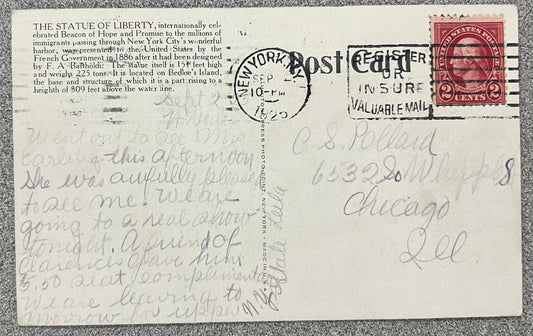 THE STATUE OF LIBERTY, internationally cele-
brated Beacon of Hope and Promise to the millions of
immigrants passing through New York City's wonderful
harbor, was presented to the United States by the
French Government in 1886 after it had been designed
by F. A. Bartholdi. The statue itself is 151 feet high
and weighs 225 tons. It is located on Bedloe's Island,
the base and structure of which it is a part rising to a
heighth of 809 feet above the water line.
Post Card
NEW YORK, N.Y.
SEP
10-PM
1925
REGISTER
OR
INSURE
VALUABLE MAIL
UNITED STATES POSTAGE
2 CENTS 2
Sept 2
We went to see Mrs
Carling this afternoon
She was awfully pleased
to see me. We are
going to a real show
tonight. A friend of
Clarences gave him
5.50 seat compliment
We are leaving to
morrow for upper
N.Y. State Leila
C. S. Pollard
6532 So
Chicago
Ill